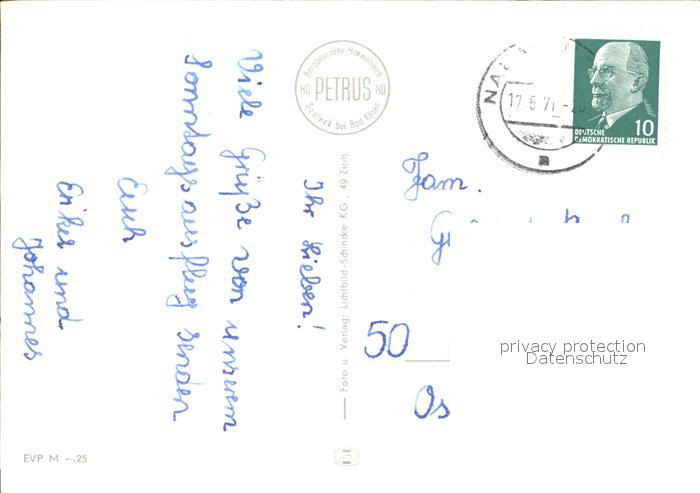 Ihr Lieben!
Viele Grüße von unserem
Sonntagsausflug senden
Euch
Erika und
Johannes
Berggaststätte Himmelreich
HO PETRUS HO
Saaleck bei Bad Kösen
Foto u. Verlag: Lichtbild-Schincke KG., 49 Zeitz
EVP M -.25
17.5.71.-20
DEUTSCHE
DEMOKRATISCHE REPUBLIK
10
Fam.
50
Os
privacy protection
Datenschutz